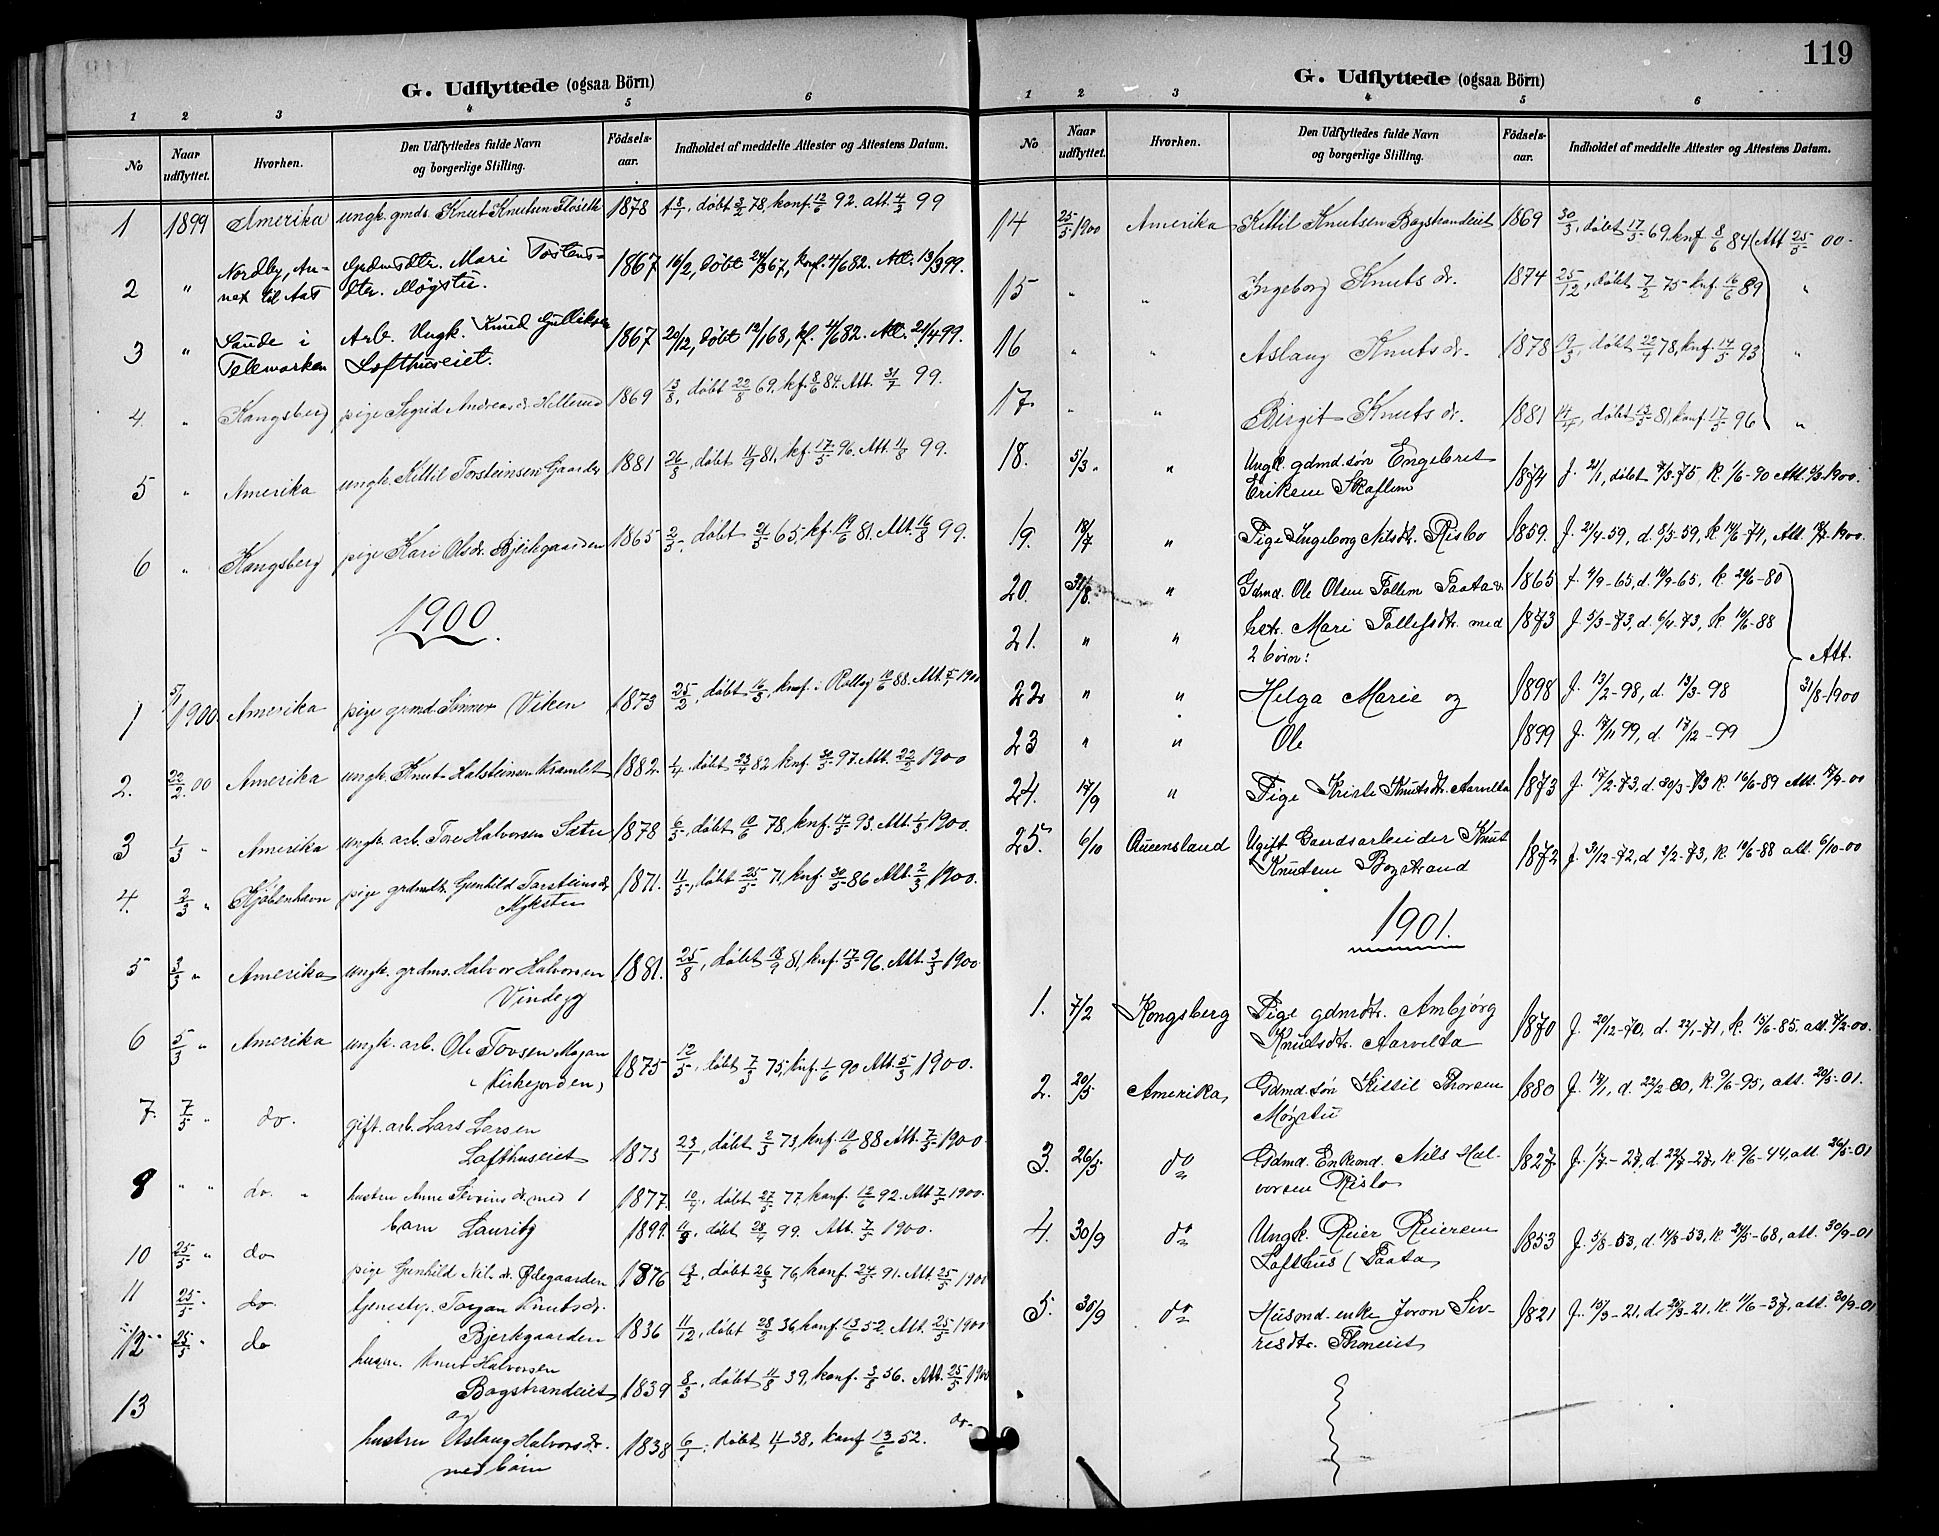 G. Udflyttede (ogsaa Börn)
1 2 3 4 5 6
No Naar udflyttet. Hvorhen. Den Udflyttedes fulde Navn og borgerlige Stilling. Födsels-aar. Indholdet af meddelte Attester og Attestens Datum.
1 1899 Amerika ungk. gmds. Knut Knutsen 1878 döbt 3/2 78, konf. 12/6 92. att. 4/3 99
2 " Nordby, An- Grdmdsdtr. Mari Tostens- 1867 16/2, döbt 24/3 67, knf. 4/6 82. Att. 13/3 99.
nex til Aas dtr. Møgstu.
3 " Saude i Arb. Ungk. Knud Gulliksen 1867 20/12, döbt 12/1 68, kf. 4/6 82. Att. 21/4 99.
Telemarken Lofthuseiet.
4. " Kongsberg pige Sigrid Andreasdr. Hellerud 1869 13/8, döbt 22/8 69, kf. 8/6 84. Att. 31/7 99.
5 " Amerika ungk. Kittil Torsteinsen Gaarder 1881 26/8, döbt 11/9 81, kf. 17/5 96. Att. 11/8 99.
6 " Kongsberg pige Kari Olsdr. Bjerkgaarden 1865 2/5, döbt 21/5 65, kf. 19/6 81. Att. 16/8 99.
1900.
1 5/1 1900 Amerika pige grmd. Sönnev Viken 1873 25/2, döbt 16/3, knf. i Rollag 10/6 88. Att. 5/1 1900
2. 22/2 00 Amerika ungk. Knut Halsteinsen Kravlet 1882. 1/4, döbt 23/4 82 knf. 30/5 97. Att. 22/2 1900
3 1/3 " Amerika ungk. arb. Tore Halvorsen Sætre 1878 6/5, döbt 10/6 78, knf. 14/5 93. Att. 1/3 1900.
4. 2/3 " Kjöbenhavn pige grdmdtr. Gunhild Torsteinsdr. 1871. 11/5, döbt 25/5 71, knf. 30/5 86 Att. 2/3 1900.
Myksten
5 3/3 " Amerika ungk. grdms. Halvor Halvorsen 1881. 25/8, döbt 18/9 81, knf. 17/5 96. Att. 3/3 1900
Vindegg
6 5/3 " Amerika ungk. arb. Ole Tovsen Mogan 1875 12/5, döbt 7/3 75, knf. 1/6 90 Att. 5/3 1900.
(Kirkejorden)
7. 7/5 " do. gift. arb. Lars Larsen
Lofthuseiet 1873 23/1, döbt 2/3 73, knf. 10/6 88 Att. 7/5 1900
8 " " do. " hustru Anne med 1 1877. 10/4, döbt 27/5 77, konf. 12/6 92. Att. 7/5 1900.
barn Lauritz 1899. 11/3, döbt 28/4 99. Att. 7/5 1900.
10 25/5 " do pige Gunhild Nilsdr. Ødegaarden 1876 13/2, döbt 26/3 76, konf. 24/5 91. Att. 25/5 1900
11 25/5 " do. tjenestp. Torjan Knutsdr.
Bjerkgaarden 1836 11/12, döbt 28/2 36, konf. 13/6 52. Att. 25/5 1900
12 25/5 " do husm. Knut Halvorsen
Bogstrandeiet 1839 8/3, döbt 11/8 39, konf. 3/8 56. Att. 25/5 1900
og do.
13 hustru Aslaug Halvorsdr. 1838 6/1, döbt 4/1 38, konf. 13/6 52.
med börn
119
G. Udflyttede (ogsaa Börn)
1 2 3 4 5 6
No Naar udflyttet. Hvorhen. Den Udflyttedes fulde Navn og borgerlige Stilling. Födsels-aar. Indholdet af meddelte Attester og Attestens Datum.
14 25/5 1900 Amerika Kittil Knutsen Bogstrandeiet 1869 30/3, döbt 17/5 69, knf. 8/6 84 Att. 25/5 00.
15 " " Ingeborg Knutsdr. 1874 25/12, döbt 7/2 75 knf. 16/6 89 "
16 " " Aslaug Knutsdr. 1878 19/3, döbt 22/4 78, knf. 14/5 93 "
17 " " Birgit Knutsdr. 1881 14/4, döbt 13/5 81, knf. 17/5 96 "
18. 5/3 " " Ungk. gdmd. sön Engebret
Eriksen Skaflem 1874 f. 21/1, döbt 7/3-75 k. 1/6-90 Att. 5/3-1900.
19. 18/7 " Pige Ingeborg Nilsdtr. Rislov 1859. f. 21/4-59, d. 8/5-59, k. 14/6-74, Att. 18/7-1900.
20. 31/8. " Gdmd. Ole Olsen Tollem Taata 1865 f. 4/9-65, d. 10/9-65, k. 20/6-80
21. " " hstr. Mari Tollefsdtr. med 1873 f. 5/3-73, d. 6/4-73, k. 10/6-88
2 börn: Att.
22 " " Helga Marie og 1898 f. 13/2-98, d. 13/3-98 31/8-1900
23 " " Ole 1899 f. 17/11 99, d. 17/12-99
24. 17/9 " Pige Kristi Knutsdtr. Aarvelta 1873 f. 17/2-73, d. 30/3-73 k. 16/6-89 Att. 17/9-00
25. 6/10 Queensland Ugift Gaardsarbeider Knut
Knutsen Bogstrand 1872 f. 31/12-72, d. 9/2-73, k. 10/6-88 att. 6/10-00
1901.
1. 7/2 Kongsberg Pige gdmdtr. Ambjörg
Knutsdtr. Aarvelta 1870 f. 20/12-70, d. 22/1-71, k. 15/6-85. att. 7/2-00.
2. 20/5 Amerika, Gdmd. sön Kittil Thorsen 1880 f. 14/1, d. 22/2 80, k. 9/6-95, att. 20/5-01.
Møgstu
3. 26/5 do Gdmd. Enkemd. Nils Hal- 1827 f. 1/7-27, d. 22/7-27, k. 9/6-44, att. 26/5-01
vorsen Rislov
4. 30/9 do Ungk. Reier Reiersen
Lofthus (Taata) 1853 f. 5/8-53, d. 14/8-53, k. 24/5-68, att. 30/9-01
5. 30/9 do Husmd. enke Joron Siv- 1821 f. 15/3-21, d. 25/3-21, k. 11/6-37, att. 30/9-01
resdtr. Thoneiet